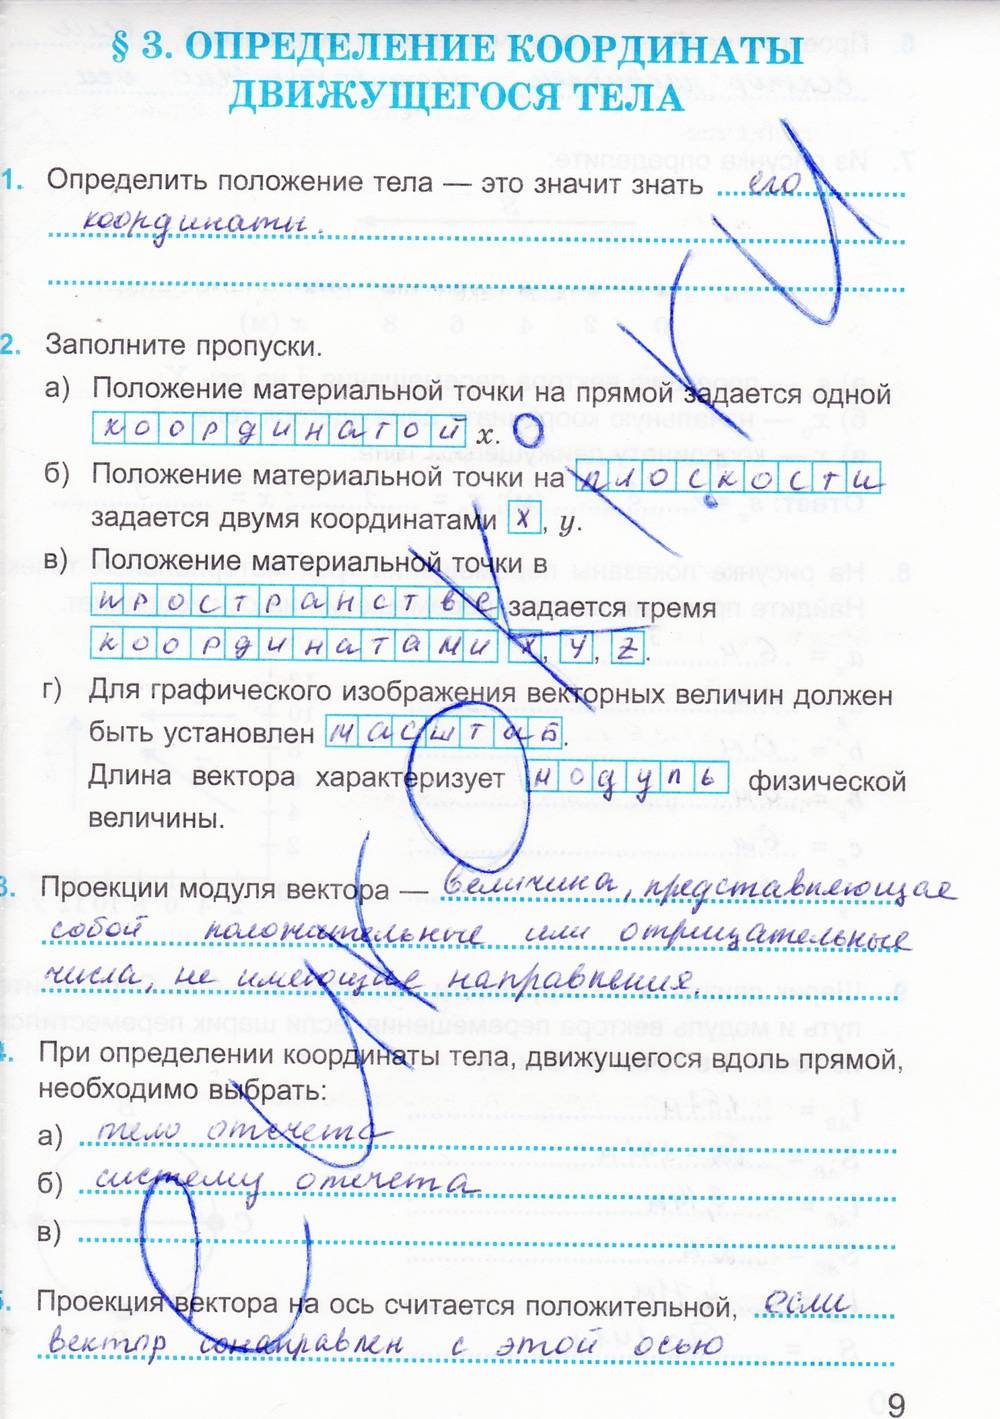 § 3. ОПРЕДЕЛЕНИЕ КООРДИНАТЫ
ДВИЖУЩЕГОСЯ ТЕЛА
1. Определить положение тела — это значит знать его
координаты.
2. Заполните пропуски.
а) Положение материальной точки на прямой задается одной
координатой x.
б) Положение материальной точки на плоскости
задается двумя координатами x, y.
в) Положение материальной точки в
пространстве задается тремя
координатами x, y, z.
г) Для графического изображения векторных величин должен
быть установлен масштаб.
Длина вектора характеризует модуль физической
величины.
3. Проекции модуля вектора — величина, представляющае
собой положительные или отрицательные
числа, не имеющие направления.
4. При определении координаты тела, движущегося вдоль прямой,
необходимо выбрать:
а) тело отсчета
б) систему отсчета
в)
5. Проекция вектора на ось считается положительной, если
вектор сонаправлен с этой осью
9